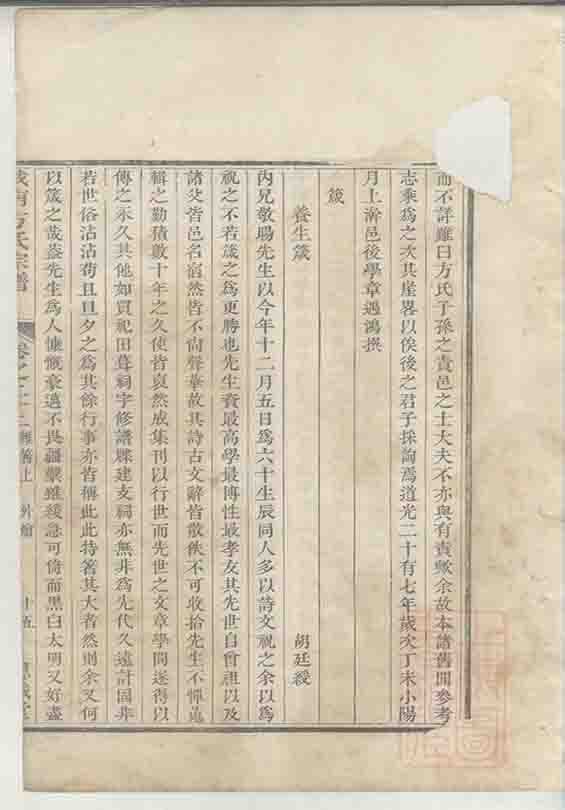 而不詳雖曰方氏子孫之責邑之士大夫不亦與有責歟余故本諸舊聞參考
志乘為之次其崖畧以俟後之君子採詢焉道光二十有七年歲次丁未小陽
月上澣邑後學章遇鴻撰
箴
養生箴
胡廷綬
內兄敬腸先生以今年十二月五日為六十生辰同人多以詩文祝之余以為
祝之不若箴之為更勝也先生資最高學最博性最孝友其先世自曾祖以及
諸父皆邑名宿然皆不尚聲華故其詩古文辭皆散佚不可收拾先生不憚蒐
輯之勤積數十年之久使皆裒然成集刊以行世而先世之文章學問遂得以
傳之永久其他如買祀田葺祠宇修譜牒建支祠亦無非為先代久遠計固非
若世俗沾沾苟且旦夕之為其餘行事亦皆稱此此特著其大者然則余又何
以箴之哉蓋先生為人慷慨豪邁不畏疆禦雖緩急可倚而黑白太明又好盡
城南方氏宗譜
卷之二十二
雜著上
外編
十五